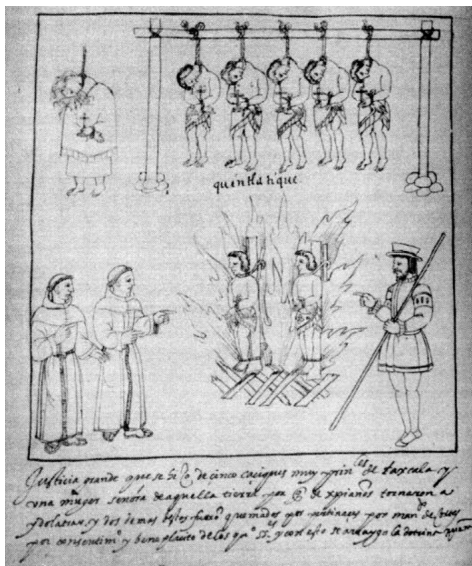 quintlatique
Justicia grande que se hiço de cinco caciques muy prinles de taxcala y
una muger señora de aquella tierra por q de xpianos tornaron a
ydolatrar, y dos demas destos fueron quemados por pertinaces por mando de
por consentimo y beneplacito de los y con esto se arraygo la doctrina